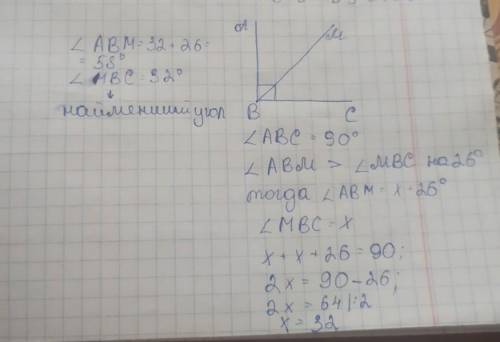 ∠ABM = 32 + 26 =
= 58°
∠MBC = 32°
↓
найменший угол
A
M
B
C
∠ABC = 90°
∠ABM > ∠MBC на 26°
тогда ∠ABM = x - 26°
∠MBC = x
x + x + 26 = 90;
2x = 90 - 26;
2x = 64 |:2
x = 32